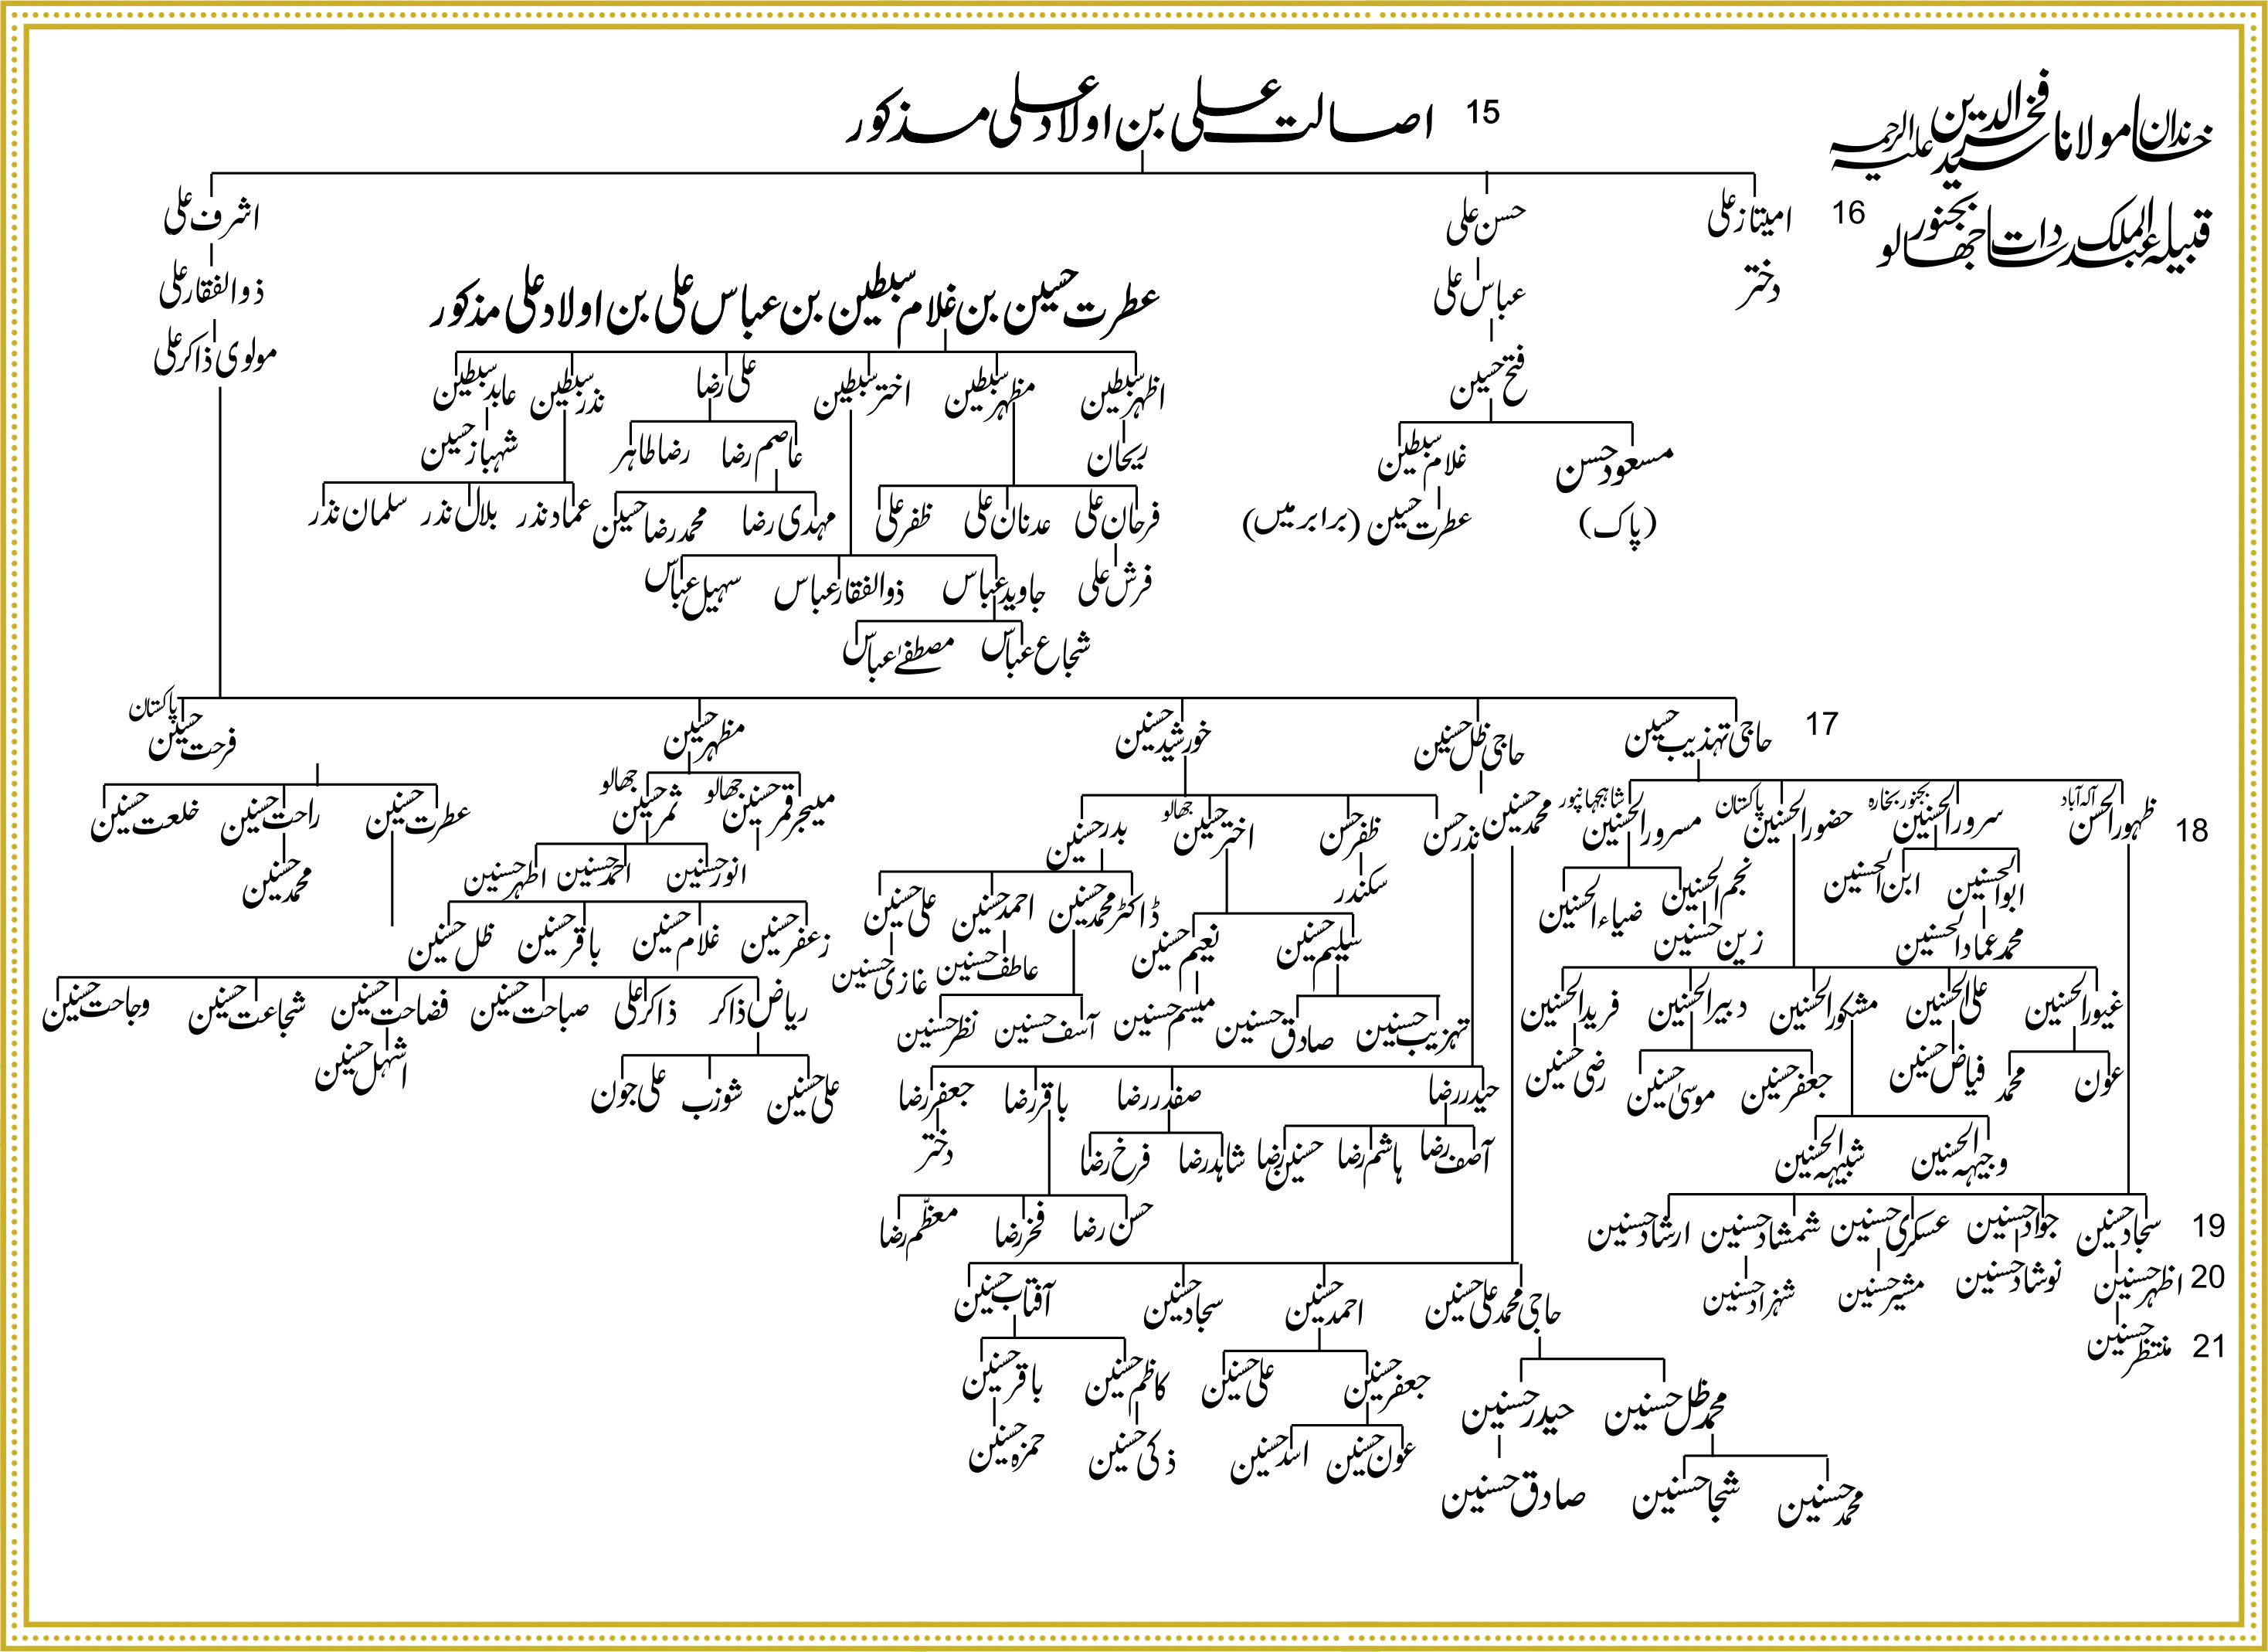 خاندان مولانا سید فخرالدین علیہ الرحمہ
قبیلہ عبدالملک سادات بجنور جھالو
15 اصالت علی بن اولاد علی مذکور
16 امیتاز علی حسن علی اشرف علی
دختر عباس علی ذوالفقار علی
عطرت حسین بن غلام سبطین بن عباس علی بن اولاد علی مذکور
فتح حسین مولوی ذاکر علی
اظہر سبطین مظہر سبطین اختر سبطین علی رضا نذر سبطین عابد سبطین
مسعود حسن غلام سبطین ریحان عاصم رضا رضا طاہر شہباز حسین
(پاک) عطرت حسین (برابر میں) فرحان علی عدنان علی ظفر علی مہدی رضا محمد رضا حسین عماد نذر بلال نذر سلمان نذر
فرش علی جاوید عباس ذوالفقار عباس سہیل عباس
شجاع عباس مصطفےٰ عباس
17 حاجی تہذیب حسین حاجی ظل حسنین خورشید حسنین مظہر حسین فرحت حسین پاکستان
18 ظہور الحسن الہ آباد سرور الحسنین بجنور بخارہ حضور الحسنین پاکستان مسرور الحسنین شاہجہانپور محمد حسنین نذر حسن ظفر حسن اختر حسین جھالو بدر حسنین میجر قمر حسنین جھالو ثمر حسین جھالو عطرت حسنین راحت حسنین خلعت حسنین
ابوالحسنین ابن الحسنین نجم الحسنین ضیاء الحسنین سکندر ڈاکٹر محمد حسنین احمد حسنین علی حسنین انور حسنین احمد حسنین اطہر حسنین محمد حسنین
محمد عماد الحسنین زین حسنین سلیم حسنین نعیم حسنین عاطف حسنین غازی حسنین زعفر حسنین غلام حسنین باقر حسنین ظل حسنین
غیور الحسنین علی الحسنین مشکور الحسنین دبیر الحسنین فرید الحسنین تہزیب حسنین صادق حسنین میسم حسنین آسف حسنین نظر حسنین ریاض ذاکر ذاکر علی صباحت حسنین فضاحت حسنین شجاعت حسنین وجاحت حسنین
عون محمد فیاض حسنین جعفر حسنین موسیٰ حسنین رضی حسنین حیدر رضا صفدر رضا باقر رضا جعفر رضا علی حسنین شوزب علی جون اشہل حسنین
وجیہہ الحسنین شبیہہ الحسنین آصف رضا ہاشم رضا حسنین رضا شاہد رضا فرخ رضا دختر
19 سجاد حسنین جواد حسنین عسکری حسنین شمشاد حسنین ارشاد حسنین حسن رضا فخر رضا معظّم رضا
20 اظہر حسنین نوشاد حسنین مشیر حسنین شہزاد حسنین حاجی محمد علی حسنین احمد حسنین سجاد حسنین آفتاب حسنین
21 منتظر حسنین محمد ظل حسنین حیدر حسنین جعفر حسنین علی حسنین کاظم حسنین باقر حسنین
محمد حسنین شجاع حسنین صادق حسنین عون حسنین اسد حسنین ذکی حسنین حمزہ حسنین